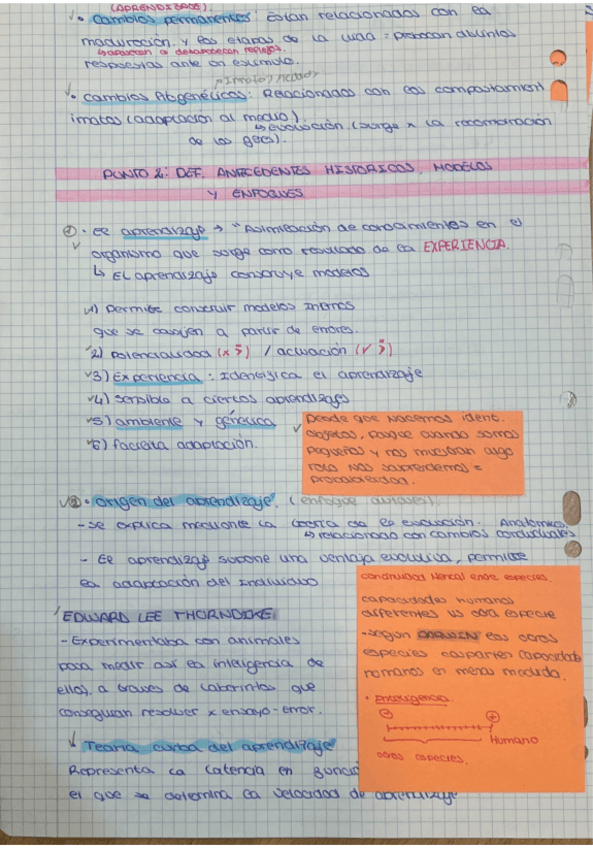 (APRENDIZAJE)
• Cambios permanentes: Están relacionados con la
maduración y las etapas de la vida = provocan distintas
↳ aparecen o desaparecen reflejos.
respuestas ante un estímulo.
Innato / heredado
• Cambios filogenéticos: Relacionados con los comportamient
innatos (adaptación al medio).
↳ evolución (surge x la recombinación
de los genes).
PUNTO 2: DEF. ANTECEDENTES HISTORICOS, MODELOS
Y ENFOQUES
① • El aprendizaje → "Asimilación de conocimientos en el
organismo que surge como resultado de la EXPERIENCIA.
↳ El aprendizaje construye modelos
1) Permite construir modelos internos
que se corrijen a partir de errores.
2) Potencialidad (x ) / actuación (v )
3) Experiencia: Identifica el aprendizaje
4) Sensible a ciertos aprendizajes
5) ambiente y genética
6) Facilita adaptación.
Desde que nacemos ident.
objetos, porque cuando somos
pequeños y nos muestran algo
roto nos sorprendemos =
② • Origen del aprendizaje. (enfoque
- Se explica mediante la teoría de la evolución. Anatómico.
↳ relacionado con cambios conductuales
- El aprendizaje supone una ventaja evolutiva, permite
la adaptación del individuo
Continuidad Mental entre especies.
capacidades humanas
diferentes vs otra especie
- según DARWIN las otras
especies comparten capacidades
humanas en menos medida.
• Inteligencia
⊖ ⊕
Humano
otras especies.
EDWARD LEE THORNDIKE
- Experimentaba con animales
para medir así la inteligencia de
ellos, a traves de laberintos que
conseguian resolver x ensayo-error.
↓ Teoria curva del aprendizaje
Representa la latencia en funció
el que se determina la velocidad de aprendizaje